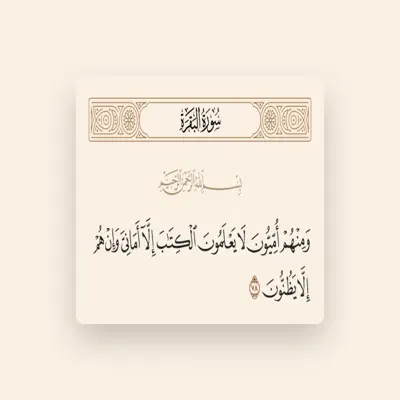 سُورَةُ البَقَرَةِ
بِسْمِ اللَّهِ الرَّحْمَٰنِ الرَّحِيمِ
وَمِنْهُمْ أُمِّيُّونَ لَا يَعْلَمُونَ ٱلْكِتَٰبَ إِلَّآ أَمَانِىَّ وَإِنْ هُمْ
إِلَّا يَظُنُّونَ ٧٨